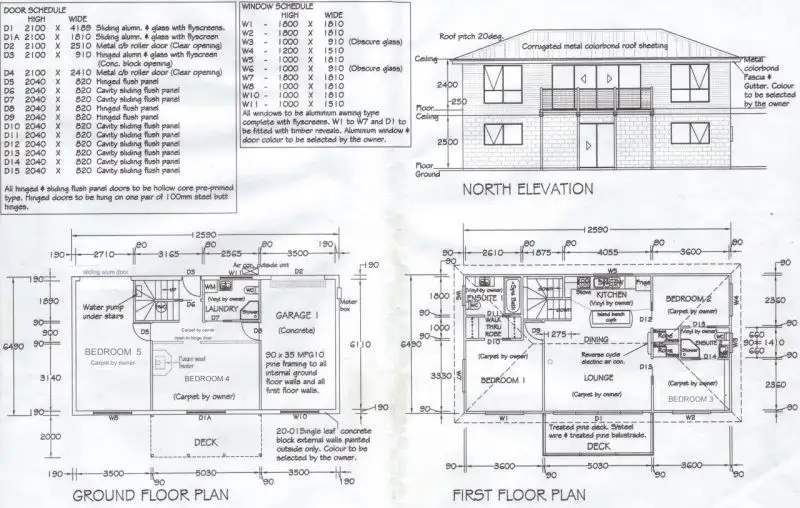 DOOR SCHEDULE
HIGH WIDE
D1 2100 X 4189 Sliding alumn. & glass with flyscreens.
D1A 2100 X 1810 Sliding alumn. & glass with flyscreen
D2 2100 X 2510 Metal c/b roller door (Clear opening)
D3 2100 X 910 Hinged alumn & glass with flyscreen
(Conc. block opening)
D4 2100 X 2410 Metal c/b roller door (Clear opening)
D5 2040 X 820 Hinged flush panel
D6 2040 X 820 Cavity sliding flush panel
D7 2040 X 820 Cavity sliding flush panel
D8 2040 X 820 Hinged flush panel
D9 2040 X 820 Hinged flush panel
D10 2040 X 820 Cavity sliding flush panel
D11 2040 X 820 Cavity sliding flush panel
D12 2040 X 820 Cavity sliding flush panel
D13 2040 X 820 Cavity sliding flush panel
D14 2040 X 820 Cavity sliding flush panel
D15 2040 X 820 Cavity sliding flush panel
All hinged & sliding flush panel doors to be hollow core pre-primed
type. Hinged doors to be hung on one pair of 100mm steel butt
hinges.
WINDOW SCHEDULE
HIGH WIDE
W1 - 1800 X 1810
W2 - 1800 X 1810
W3 - 1000 X 910 (Obscure glass)
W4 - 1200 X 1510
W5 - 1000 X 1810
W6 - 1000 X 910 (Obscure glass)
W7 - 1800 X 1810
W8 - 1000 X 1810
W10 - 1000 X 1810
W11 - 1000 X 1510
All windows to be aluminum awning type
complete with flyscreens. W1 to W7 and D1 to
be fitted with timber reveals. Aluminum window &
door colour to be selected by the owner.
Roof pitch 20deg.
Corrugated metal colorbond roof sheeting
Ceiling
2400
250
Floor
Ceiling
2500
Floor
Ground
Metal
colorbond
Fascia &
Gutter. Colour
to be selected
by the owner
NORTH ELEVATION
12590
90 90 90
190 2710 3165 2565 3500 190
Air con. outside unit
sliding alum door
D3 W11 D2
190
Meter
box
6490
1890
90
900
90
3140
190
2000
6110
190
Water pump
under stairs
UP
D6
WM
WC
(Vinyl by owner)
LAUNDRY
D7
Shower
GARAGE 1
(Concrete)
D5
Carpet by owner
D8
BEDROOM 5
Carpet by owner
BEDROOM 4
(Carpet by owner)
90 x 35 MPG10
pine framing to all
internal ground
floor walls and all
first floor walls.
W8 D1A W10
DECK
20-01 Single leaf concrete
block external walls painted
outside only. Colour to be
selected by the owner.
190 3500 5030 3500 190
90 90
GROUND FLOOR PLAN
12590
90 90 90
90 2610 1875 4055 3600 90
W5
90
6490
1800
90
1000
90
3330
90
W6
WC
(Vinyl by owner)
ENSUITE 1
D11
WALK
THRU
ROBE
D10
down
down
D9
1275
Stove
Fridge
KITCHEN
(Vinyl by owner)
Island bench
D12
DINING
(Carpet by owner)
BEDROOM 2
W4
D15
(Vinyl by owner)
Robe
Robe
ENSUITE
Shower
WC
D14
W3
Reverse cycle
electric air con.
D13
LOUNGE
(Carpet by owner)
(Carpet by owner)
BEDROOM 1
W7
(Carpet by owner)
BEDROOM 3
2360
90
660
90 1410
660
90
2360
90
W1 D1 W2
Treated pine deck. S/steel
wire & treated pine balustrade.
DECK
90 3600 5030 3600 90
90 90
FIRST FLOOR PLAN